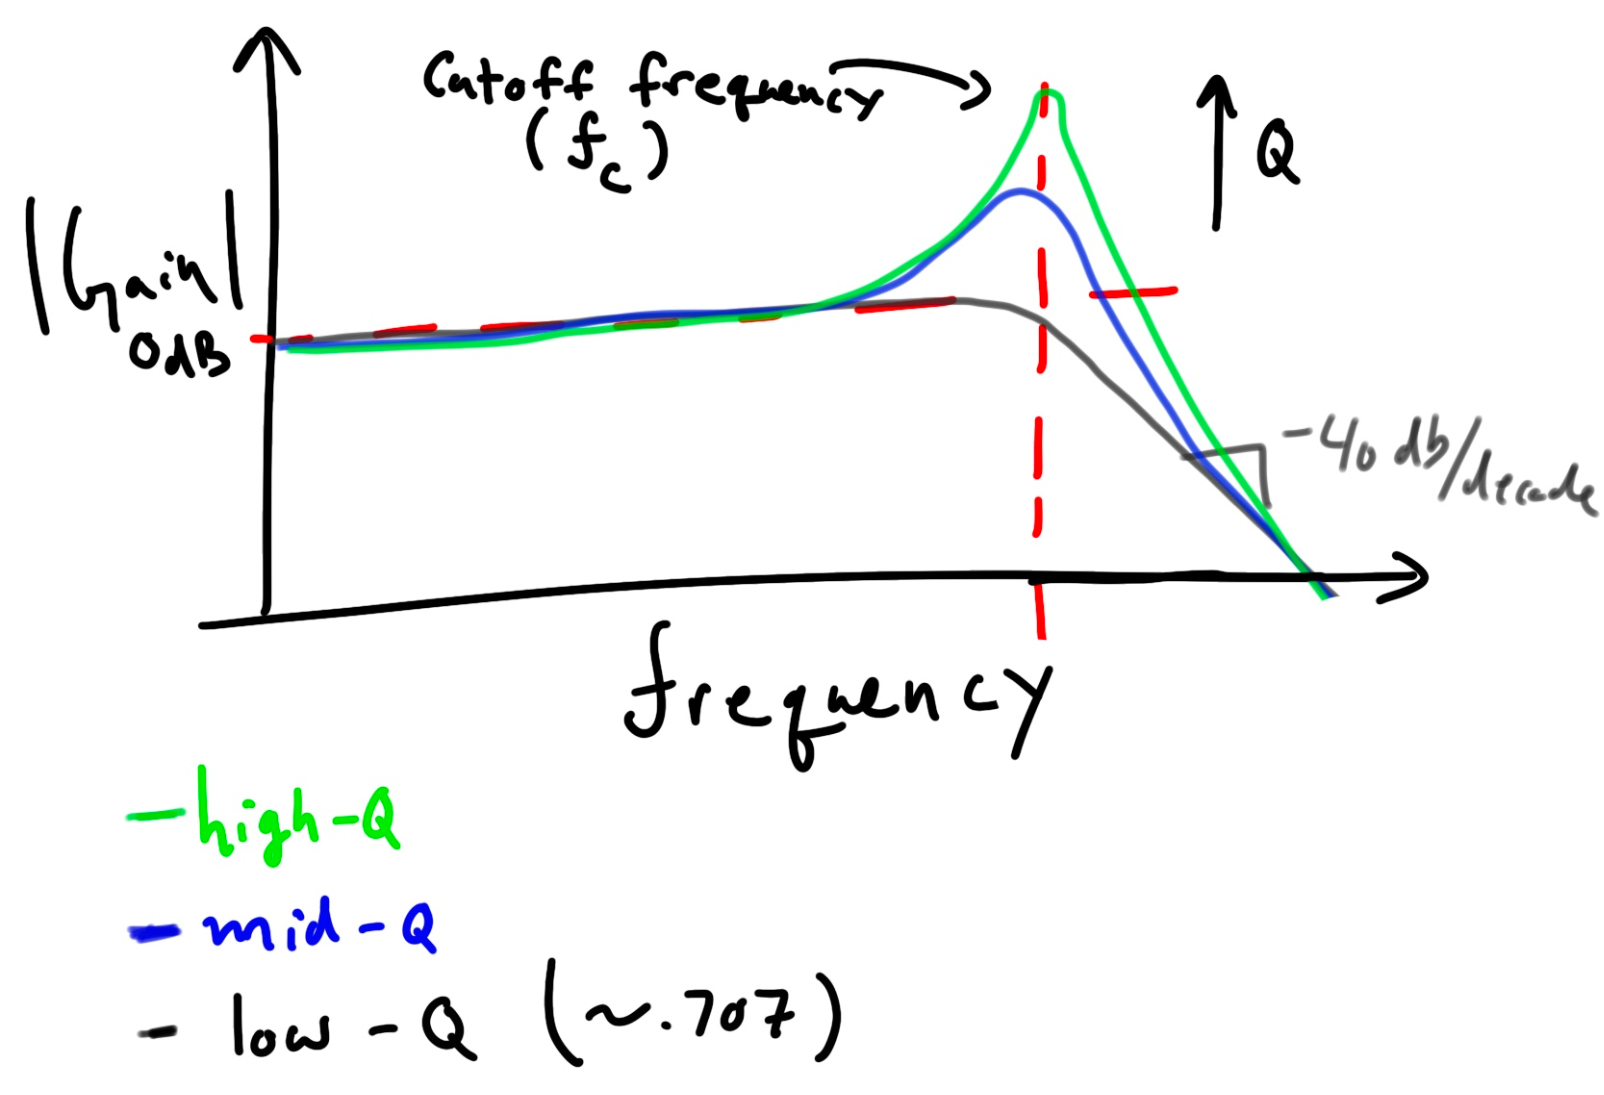 Cutoff frequency
(fc)
Q
|Gain|
0dB
-40 db/decade
frequency
- high-Q
- mid-Q
- low-Q (~.707)